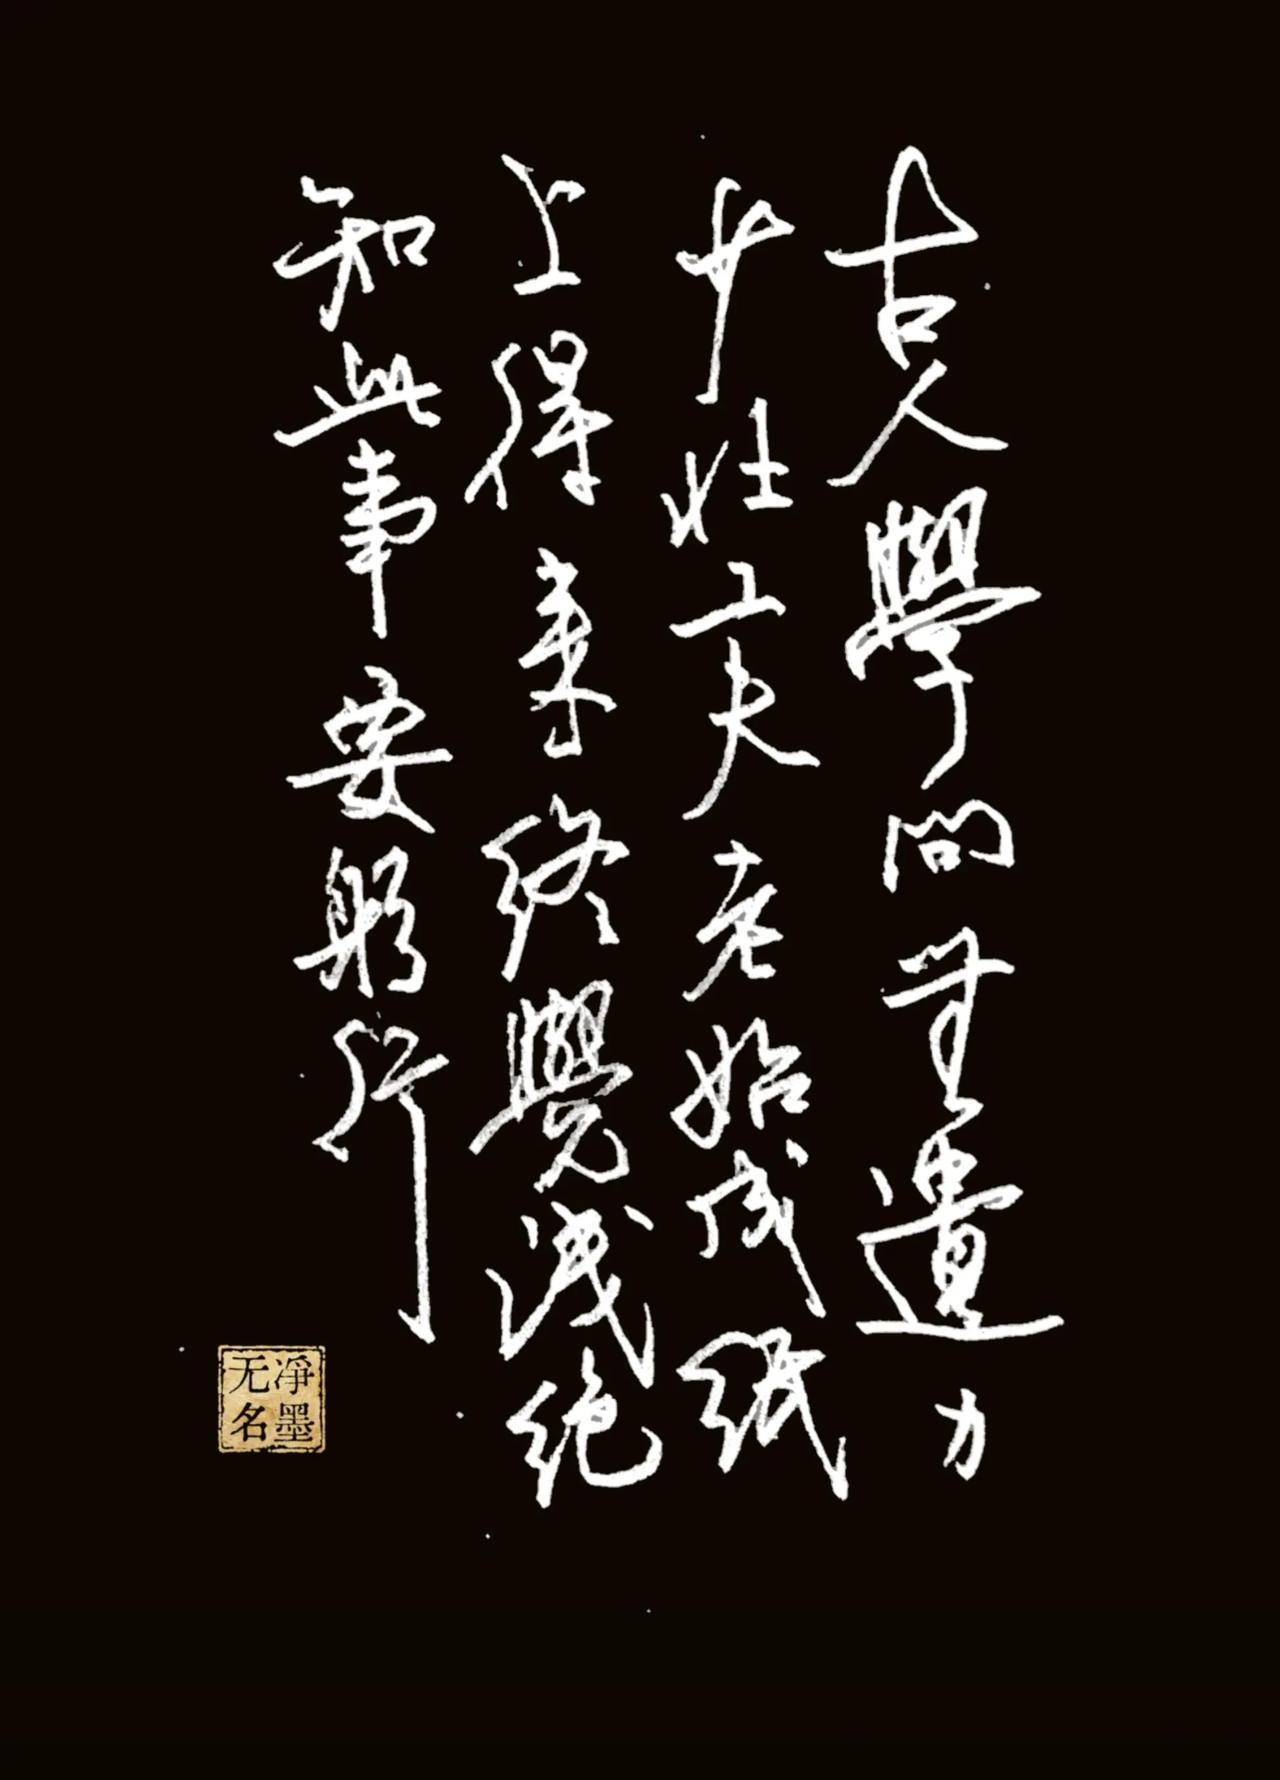 古人學問無遺力
少壯工夫老始成紙
上得來終覺淺絕
知此事要躬行
淨墨
无名